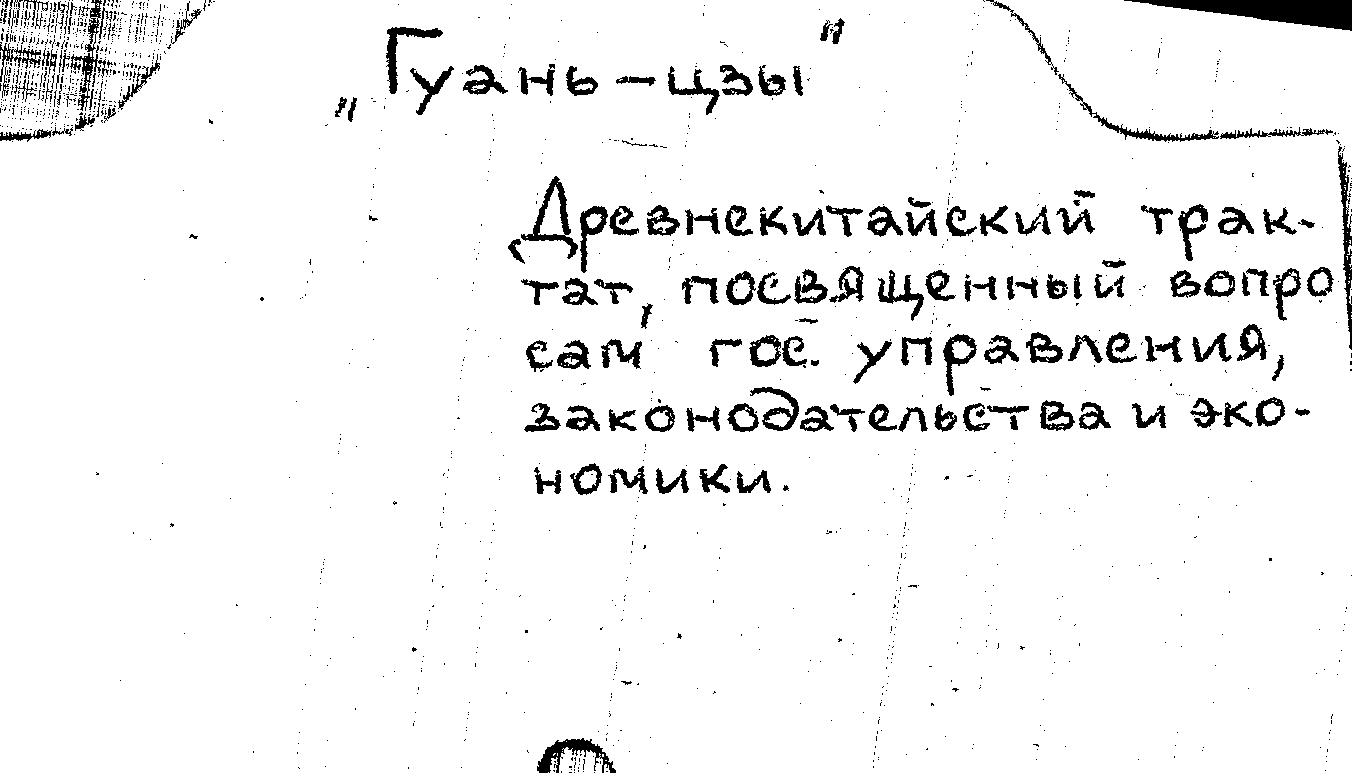 „Гуань-цзы"
Древнекитайский трак-
тат, посвященный вопро
сам гос. управления,
законодательства и эко-
номики.